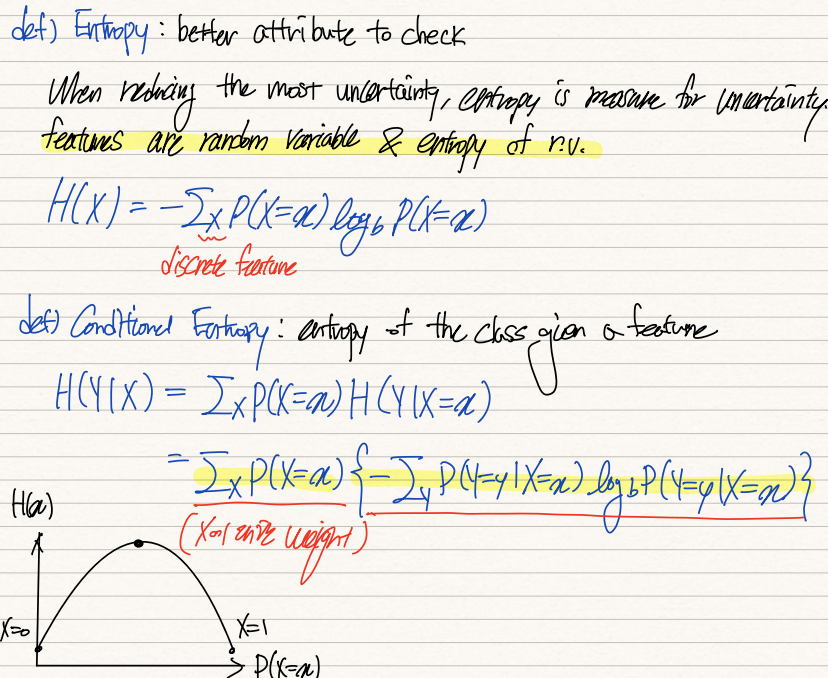 def) Entropy : better attribute to check
When reducing the most uncertainty, entropy is measure for uncertainty.
features are random variable & entropy of r.v.
H(X) = -∑x P(X=x) log_b P(X=x)
discrete feature
def) Conditional Entropy : entropy of the class given a feature
H(Y|X) = ∑x P(X=x) H(Y|X=x)
= ∑x P(X=x) {-∑y P(Y=y|X=x) log_b P(Y=y|X=x)}
(X weight)
H(x)
X=0
X=1
P(X=x)